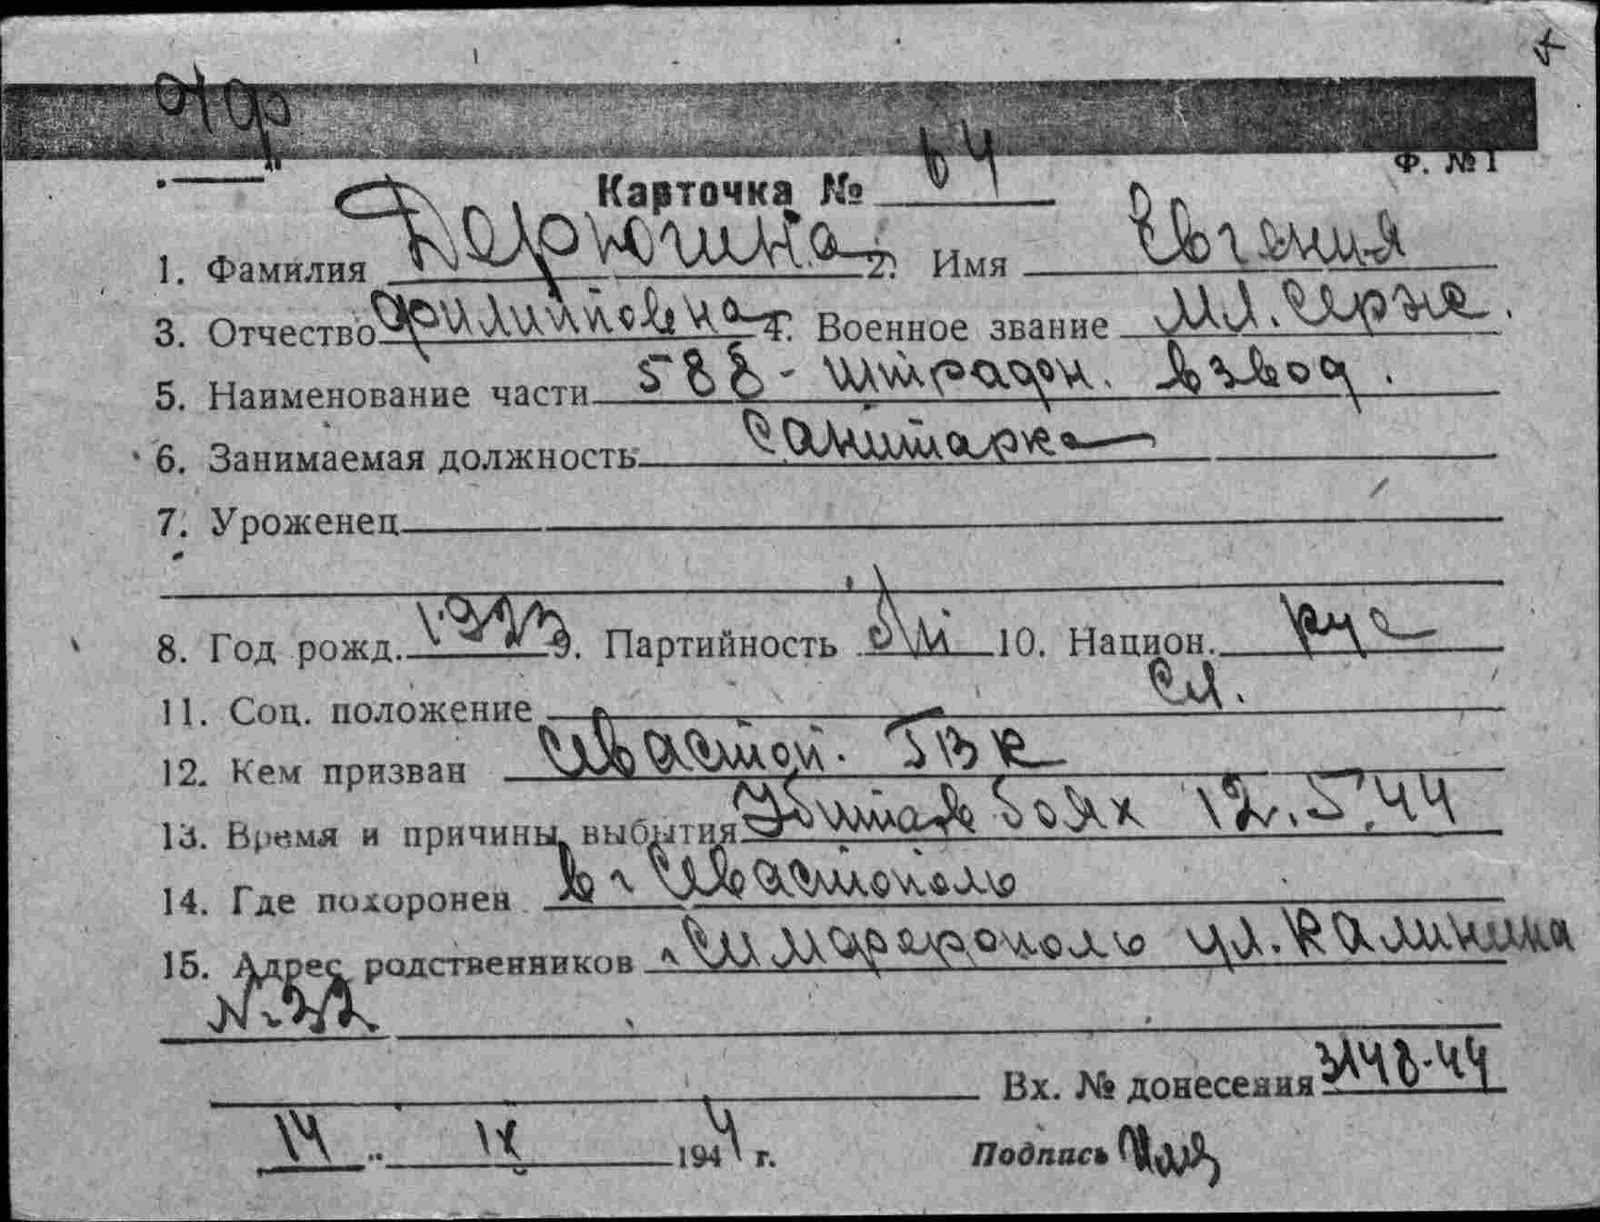 Ф. № 1
Карточка № 64
1. Фамилия Дерюгина 2. Имя Евгения
3. Отчество Филипповна 4. Военное звание мл. серж.
5. Наименование части 588 - штрафн. взвод.
6. Занимаемая должность Санитарка
7. Уроженец
8. Год рожд. 1923 9. Партийность 10. Национ. рус
11. Соц. положение сл.
12. Кем призван Севастоп. ГВК
13. Время и причины выбытия Убита в боях 12.5.44
14. Где похоронен в г Севастополь
15. Адрес родственников Симферополь ул. Калинина
№ 32
Вх. № донесения 3148-44
14 IX 1944 г. Подпись